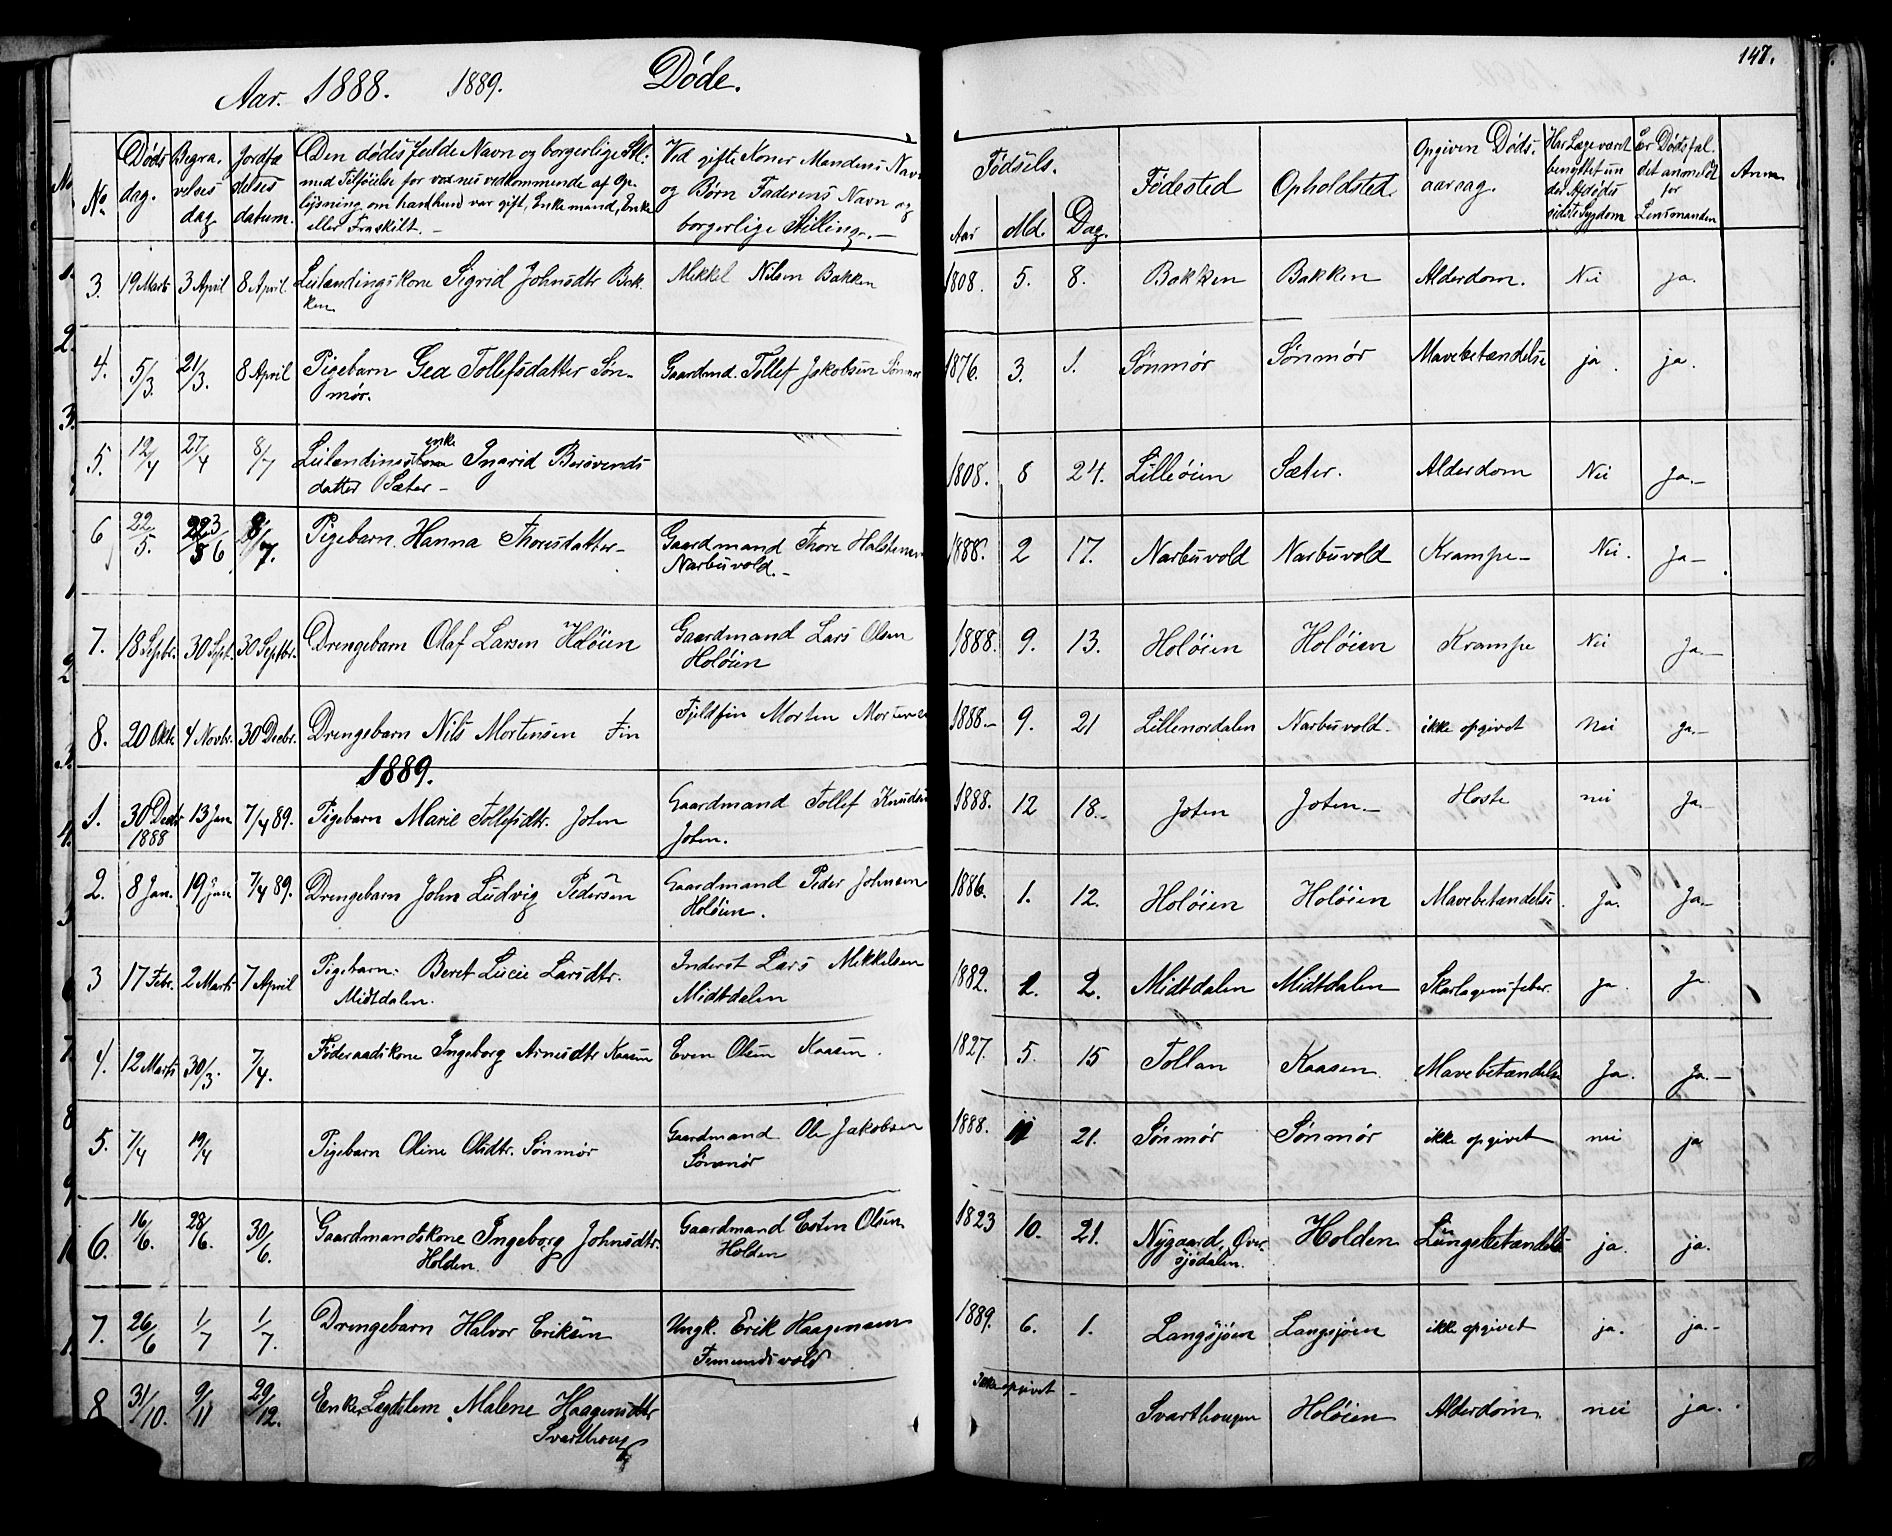 Aar. 1888. 1889. Døde. 147.
No. Døds dag. Begravelses dag. Jordfæstelses datum. Den dødes fulde Navn og borgerlige Stilling med Tilføielse for voxnes vedkommende af Oplysning om han hun var gift, Enkemand, Enke eller Fraskilt. – Ved gifte Koner Mandens Navn og Børn Faderens Navn og borgerlige Stilling. – Fødsels. Aar Md. Dag. Fødested Opholdsted Opgiven Dødsaarsag. Har Læge været benyttet under Afdødes sidste Sygdom Er Dødsfaldet anmeldt for Lensmanden Anm
3. 19 Marts 3 April 8 April. Leilændingskone Sigrid Johnsdtr Bakken Mikkel Nilsen Bakken 1808. 5. 8. Bakken Bakken Alderdom. Nei ja.
4. 5/3. 21/3. 8 April Pigebarn Gea Tollefsdatter Sønmør. Gaardmd. Tollef Jakobsen Sønmør 1876. 3. 1. Sønmør Sønmør Mavebetændelse ja. ja.
5. 12/4 27/4 8/7 Leilændings enke Ingrid Bersvendsdatter Sæter – 1808. 8 24. Lilleøien Sæter. Alderdom Nei Ja. –
6 22/5. 3/6 8/7. Pigebarn. Hanna Thoresdatter – Gaardmand Thore Halstensen Narbuvold. – 1888. 2 17. Narbuvold Narbuvold Krampe – Nei. Ja –
7. 18 Septbr. 30 Sept. 30 Septbr. Drengebarn Olaf Larsen Holøien Gaardmand Lars Olsen Holøien 1888. 9. 13. Holøien Holøien Krampe Nei Ja. –
8. 20 Oktr. 4 Novbr. 30 Decbr. Drengebarn Nils Mortensen Fin Fjeldfin Morten Mortensen 1888 – 9. 21 Lillenordalen Narbuvold. ikke opgivet Nei Ja. –
1889.
1. 30 Decbr 1888 13 Jan 7/4 89. Pigebarn Marie Tollefsdtr. Joten Gaardmand Tollef Knudsen Joten. 1888. 12 18. – Joten Joten. – Hoste nei Ja. –
2. 8 Jan. 19 Jan 7/4 89. Drengebarn John Ludvig Pedersen Gaardmand Peder Johnsen Holøien. 1886. 1. 12. Holøien Holøien Mavebetændelse. Ja. Ja –
3 17 Febr. 2 Marts 7 April Pigebarn: Beret Lucie Larsdtr. Midtdalen. Inderst Lars Mikkelsen Midtdalen 1882. 2. Midtdalen Midtdalen Skarlagensfeber. Ja. Ja.
4. 12 Marts 30/3. 7/4. Føderaadskone Ingeborg Arnesdtr Kaasen Even Olsen Kaasen. 1827. 5. 15 Tollan Kaasen. Mavebetændelse Ja. Ja. –
5. 7/4 19/4 Pigebarn Oline Olsdtr. Sønmør Gaardmand Ole Jakobsen Sønmør 1888. 11 21. Sønmør Sønmør ikke opgivet nei ja
6. 16/6. 28/6. 30/6. Gaardmandskone Ingeborg Johnsdtr. Holden. Gaardmand Esten Olsen Holden 1823 10. 21. Nygaard, Øversjødalen. Holden Lungebetændelse ja. ja.
7. 26/6 1/7 1/7. Drengebarn Halvor Eriksen Ungk. Erik Haagensen Femundsvold 1889. 6. 1. Langsjøen Langsjøen ikke opgivet ja. ja. –
8 31/10. 9/11 29/12. Enke, Lægdslem. Malene Haagensdtr Svarthoug Ikke opgivet – Svarthougen Holøien Alderdom. nei ja.